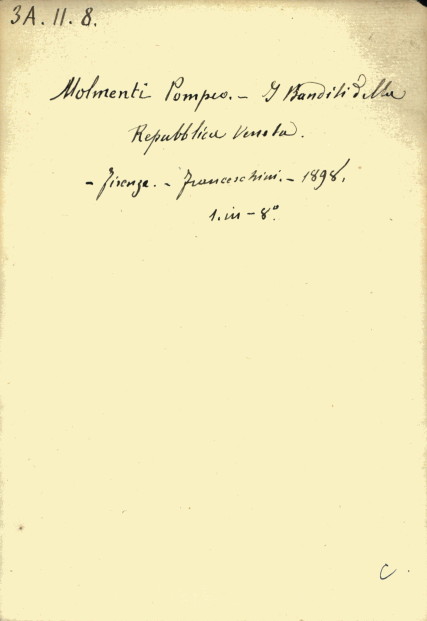 3A. II. 8.
Molmenti Pompeo. – I Banditi della
Repubblica Veneta.
– Firenze. – Franceschini. – 1898.
1. in – 8º
C.